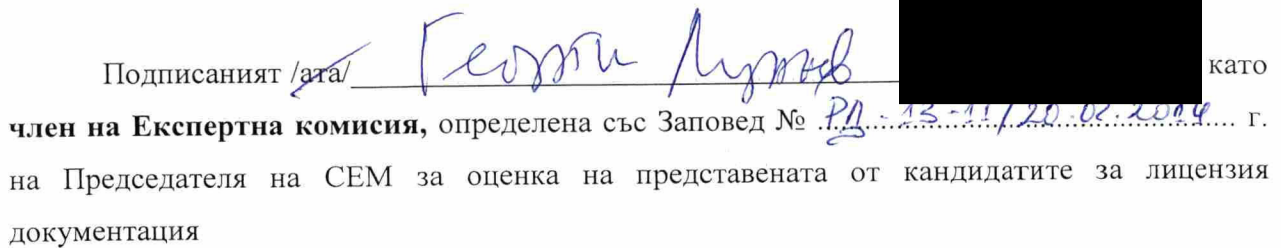 Подписаният /ата/ Георги
като
член на Експертна комисия, определена със Заповед № РД - 13-11/20.02.2014 г.
на Председателя на СЕМ за оценка на представената от кандидатите за лицензия
документация